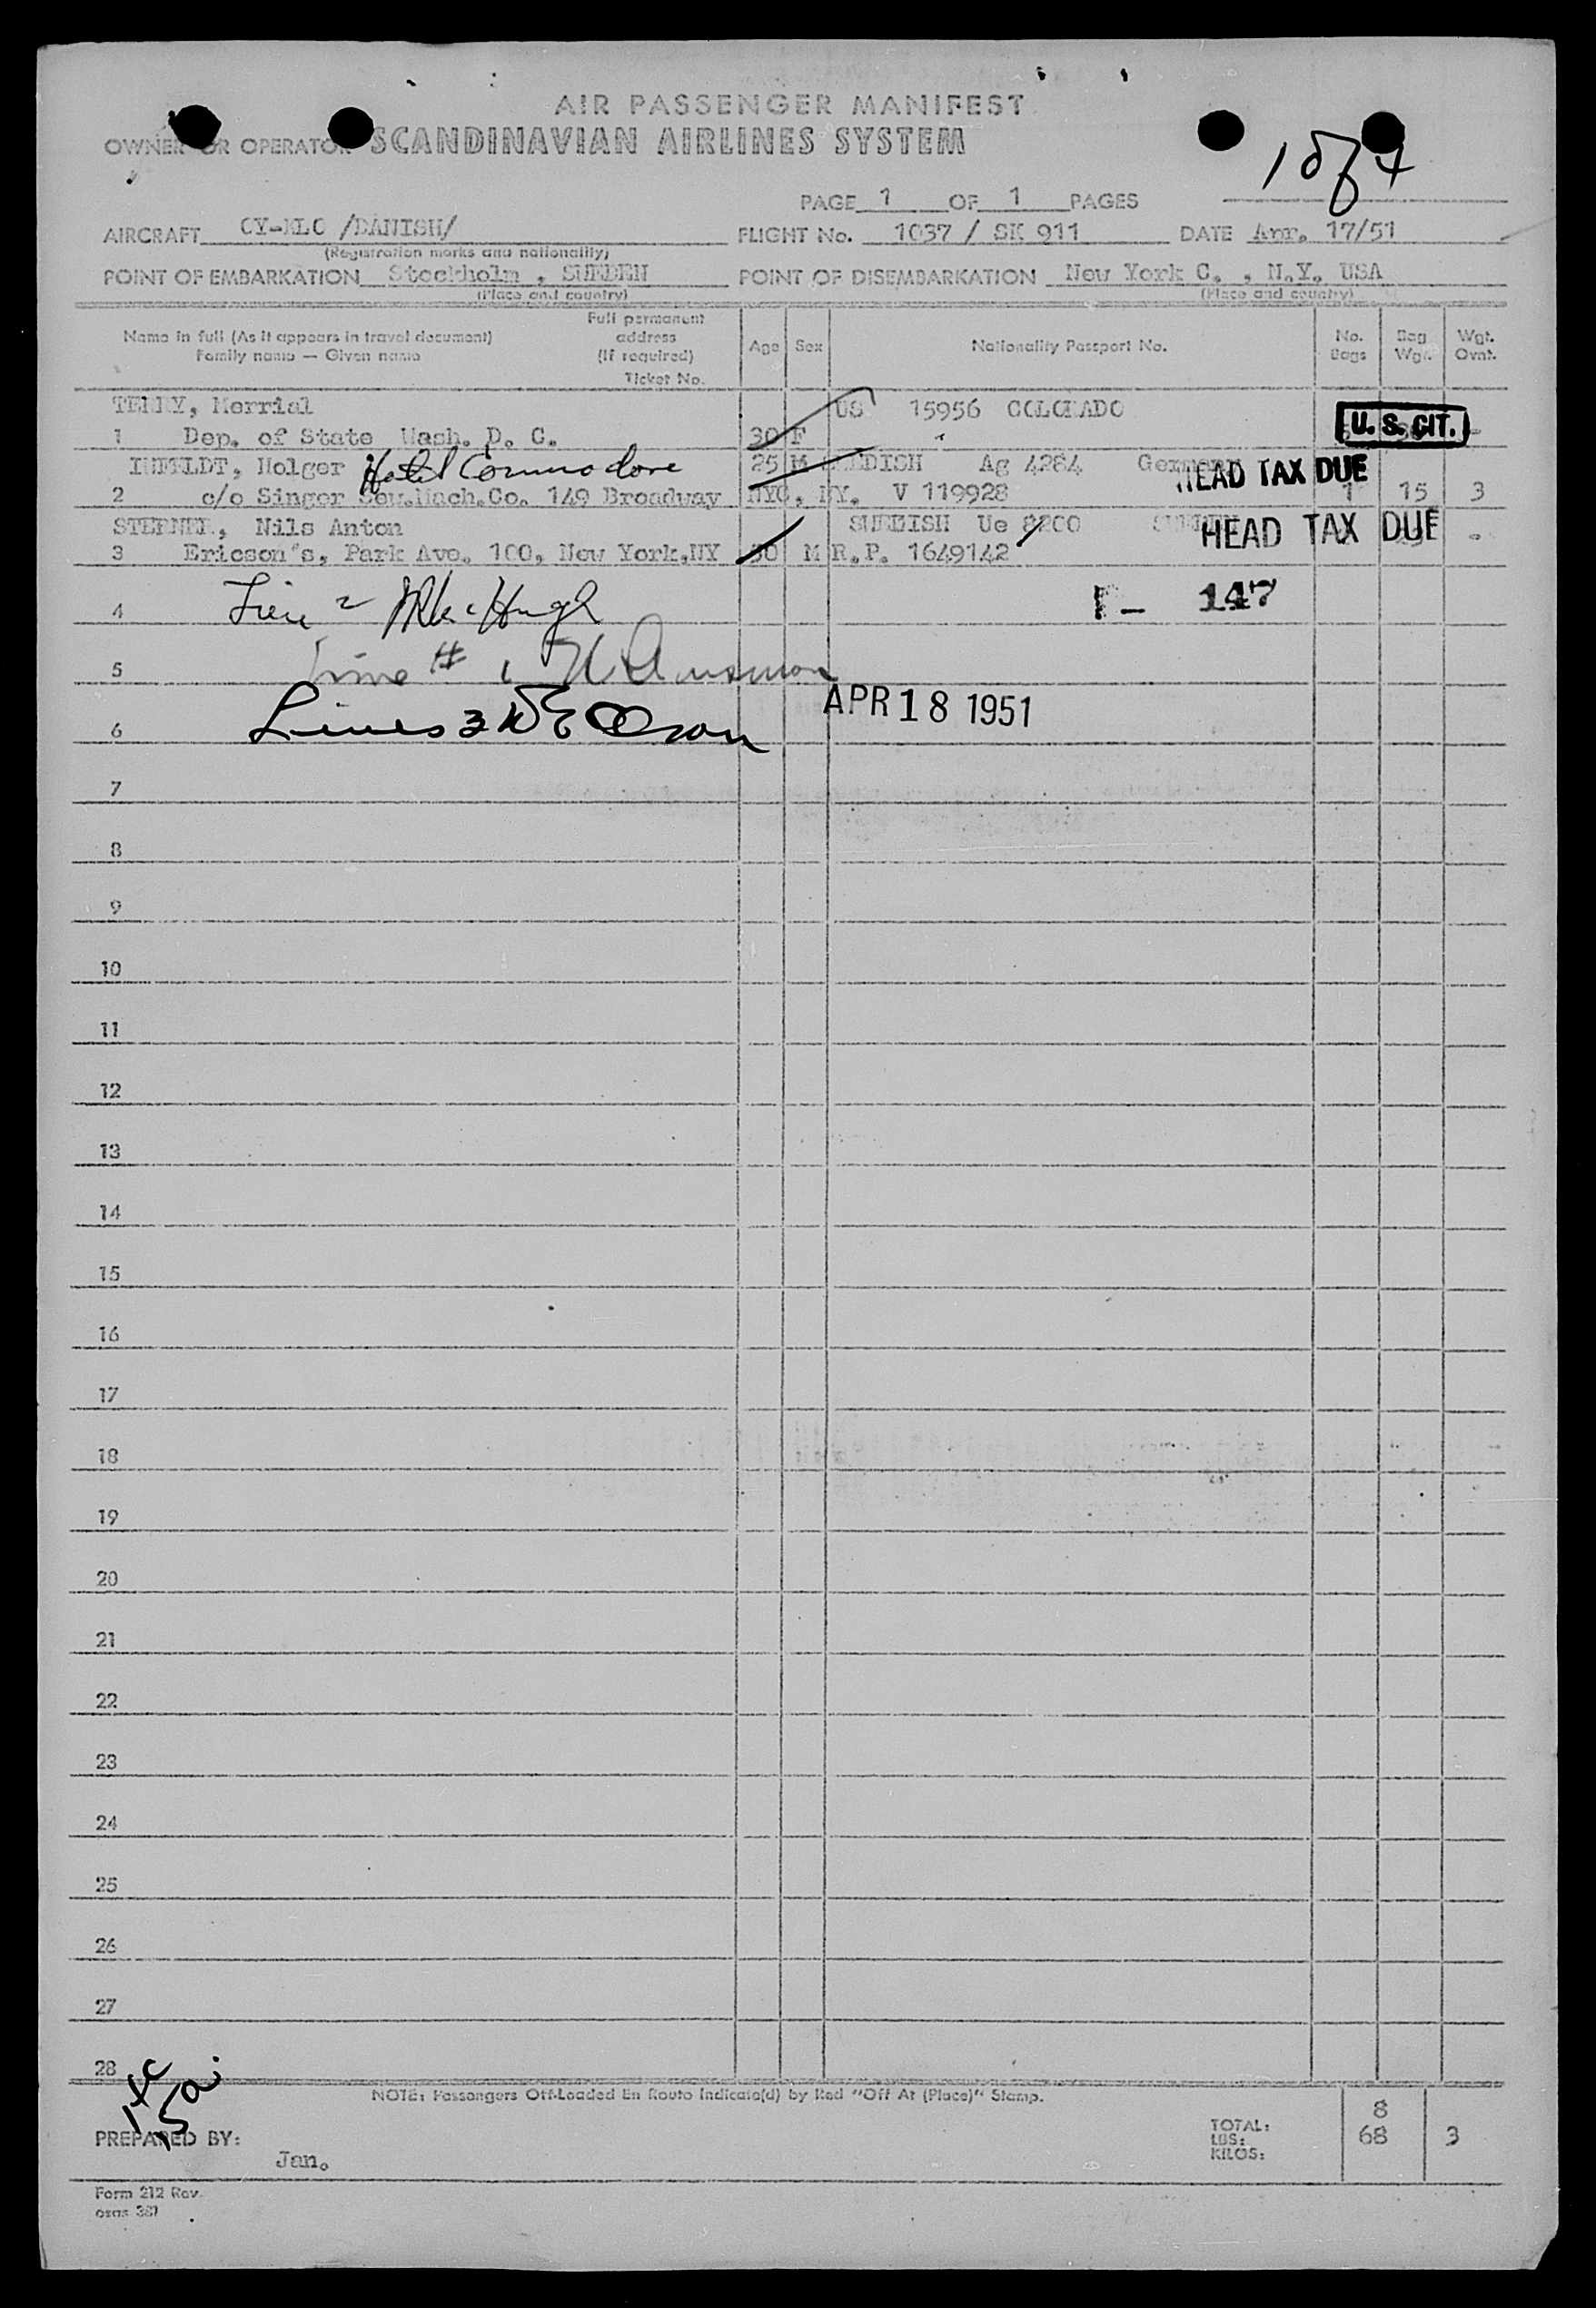 AIR PASSENGER MANIFEST
OWNER OR OPERATOR SCANDINAVIAN AIRLINES SYSTEM
1 of 4
PAGE 1 OF 1 PAGES
AIRCRAFT /DANISH/ FLIGHT No. 1037 / SK 911 DATE Apr. 17/51
(Registration marks and nationality)
POINT OF EMBARKATION Stockholm , SWEDEN POINT OF DISEMBARKATION New York C. , N.Y. USA
(Place and country) (Place and country)
Name in full (As it appears in travel document)
Family name — Given name
Full permanent
address
(If required)
Ticket No.
Age Sex Nationality Passport No. No. Bags Bag Wgt. Wgt. Ovnt.
TERRY, Merrial US 15956 COLORADO U. S. CIT.
1 Dep. of State Wash. D. C. 30 F
Holger Hotel Commodore 25 M Ag 4284 Germany HEAD TAX DUE
2 c/o Singer Sew.Mach.Co. 149 Broadway NYC, NY. V 119928 1 15 3
Nils Anton SWEDISH Ue 8200 SWEDEN HEAD TAX DUE
3 Ericson's, Park Ave. 100, New York,NY 30 M R.P. 1649142 -
4 Line 2 147
5 Line # 1
6 Lines 3 APR 18 1951
7
8
9
10
11
12
13
14
15
16
17
18
19
20
21
22
23
24
25
26
27
28
NOTE: Passengers Off-Loaded En Route Indicate(d) by Red "Off At (Place)" Stamp.
PREPARED BY:
Jan.
TOTAL: 8
LBS: 68 3
KILOS:
Form 212 Rev.
osas 381